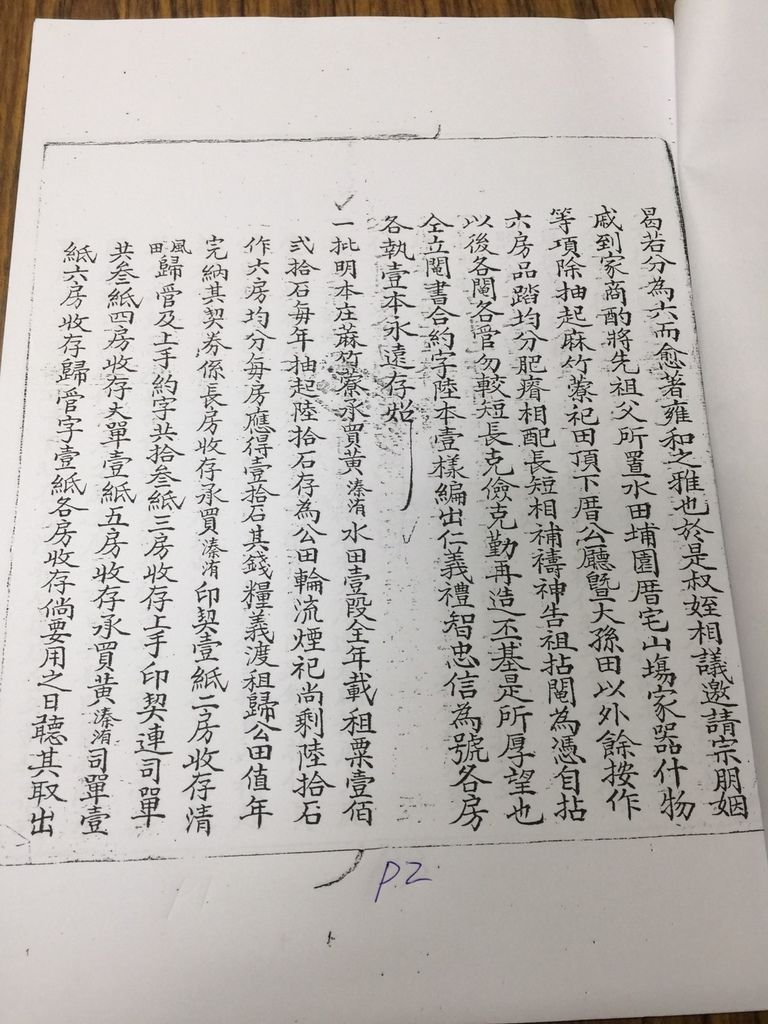 曷若分為六而愈著雍和之雅也於是叔姪相議邀請宗朋姻
戚到家商酌將先祖父所置水田埔園厝宅山塲家器什物
等項除抽起麻竹藔祀田頂下厝公廳暨大孫田以外餘按作
六房品踏均分肥瘠相配長短相補禱神告祖拈鬮為憑自拈
以後各鬮各管勿較短長克儉克勤再造丕基是所厚望也
仝立鬮書合約字陸本壹樣編出仁義禮智忠信為號各房
各執壹本永遠存炤
一批明本庄蔴竹藔承買黃溱洧水田壹段全年載租粟壹佰
弍拾石每年抽起陸拾石存為公田輪流煙祀尚剩陸拾石
作六房均分每房應得壹拾石其錢糧義渡租歸公田值年
完納其契券係長房收存承買溱洧印契壹紙二房收存清
風田歸管及上手約字共拾叁紙三房收存上手印契連司單
共叁紙四房收存大單壹紙五房收存承買黃溱洧司單壹
紙六房收存歸管字壹紙各房收存倘要用之日聽其取出
P2